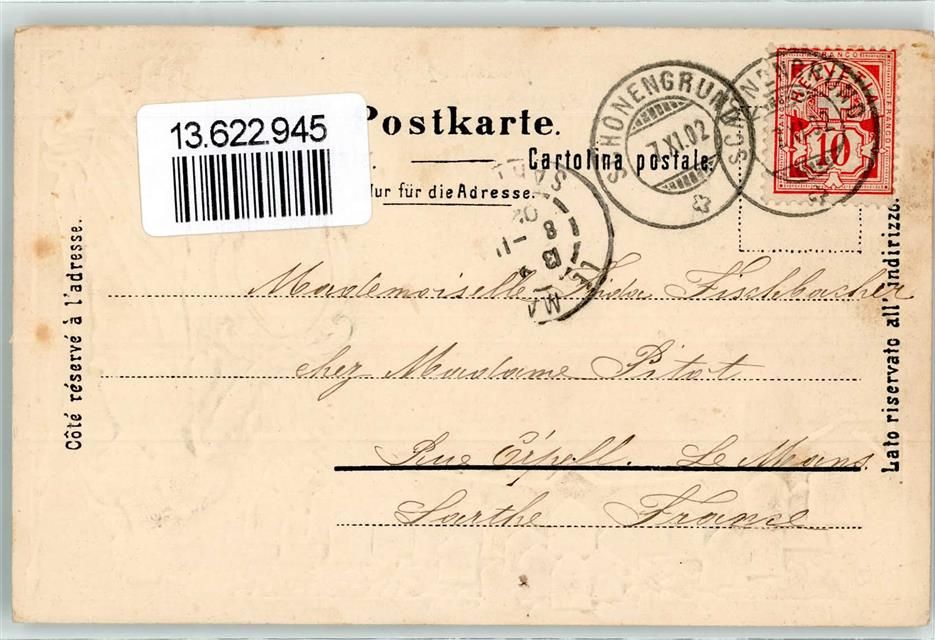 13.622.945
Postkarte.
Cartolina postale.
Nur für die Adresse.
SCHONENGRUND
7.XI.02
FRANCO
10
LE MANS
SARTHE
13
8 - 11
02
Côté réservé à l'adresse.
Lato riservato all' indirizzo.
Mademoiselle Fischbacher
chez Madame Pitot
Rue Le Mans.
Sarthe France